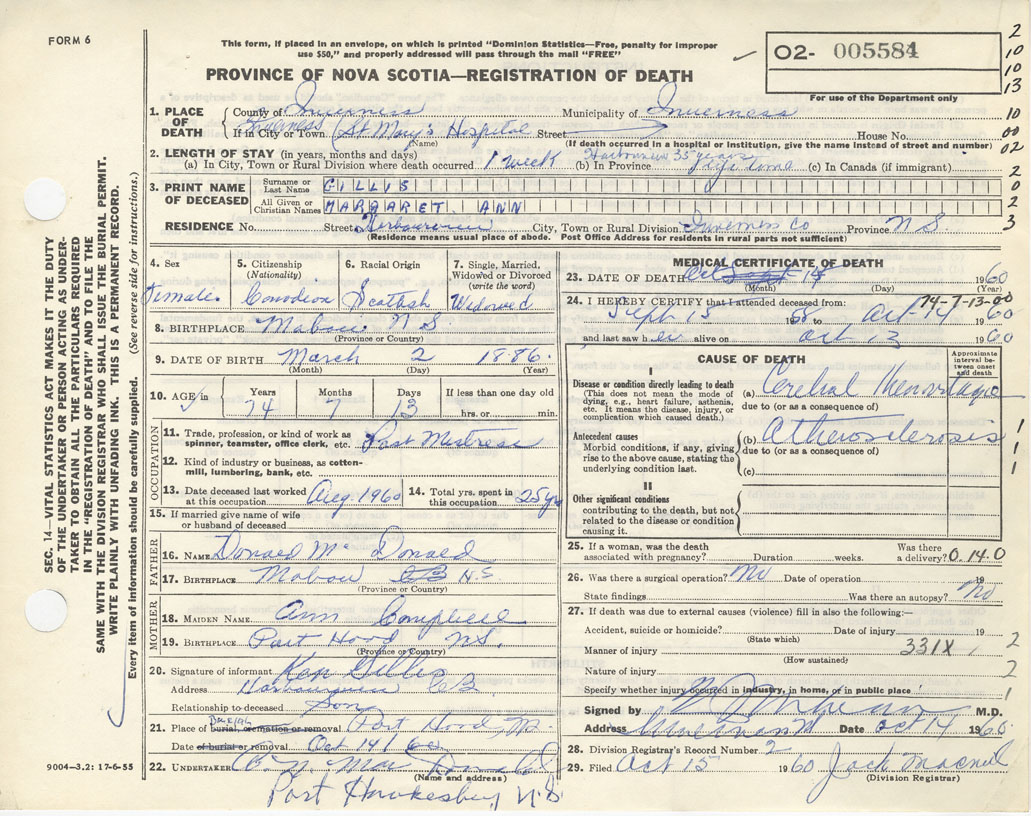 FORM 6
This form, if placed in an envelope, on which is printed "Dominion Statistics—Free, penalty for improper
use $50," and properly addressed will pass through the mail "FREE"
PROVINCE OF NOVA SCOTIA—REGISTRATION OF DEATH
O2- 005584
For use of the Department only
2
10
10
13
10
00
02
2
0
2
3
1. PLACE OF DEATH
County of Inverness Municipality of Inverness
If in City or Town Inverness (St Mary's Hospital Street House No.
(Name) (If death occurred in a hospital or institution, give the name instead of street and number)
2. LENGTH OF STAY (in years, months and days) Harbourview 35 years
(a) In City, Town or Rural Division where death occurred 1 week (b) In Province life time (c) In Canada (if immigrant)
3. PRINT NAME OF DECEASED
Surname or Last Name GILLIS
All Given or Christian Names MARGARET ANN
RESIDENCE No. Street Harbourview City, Town or Rural Division Inverness Co Province N S
(Residence means usual place of abode. Post Office Address for residents in rural parts not sufficient)
4. Sex
Female
5. Citizenship
(Nationality)
Canadian
6. Racial Origin
Scottish
7. Single, Married, Widowed or Divorced
(write the word)
Widowed
8. BIRTHPLACE Mabou N S.
(Province or Country)
9. DATE OF BIRTH March 2 1886.
(Month) (Day) (Year)
10. AGE
Years Months Days If less than one day
74 7 13 hrs. or min.
OCCUPATION
11. Trade, profession, or kind of work as spinner, teamster, office clerk, etc. Post Mistress
12. Kind of industry or business, as cotten-mill, lumbering, bank, etc.
13. Date deceased last worked at this occupation Aug 1960
14. Total yrs. spent in this occupation 25 yrs
15. If married give name of wife or husband of deceased
FATHER
16. NAME Donald Mc Donald
17. BIRTHPLACE Mabou CB N.S
(Province or Country)
MOTHER
18. MAIDEN NAME Ann Campbell
19. BIRTHPLACE Port Hood NS.
(Province or Country)
20. Signature of informant Ken Gillis
Address Harbourview C.B.
Relationship to deceased Son
21. Place of burial, cremation or removal Burial Port Hood, NS
Date of burial or removal Oct 14 / 60
22. UNDERTAKER Mac Donald
(Name and address)
Port Hawkesbury N.S
MEDICAL CERTIFICATE OF DEATH
23. DATE OF DEATH Oct 14 1960
(Month) (Day) (Year)
74-7-13-00
24. I HEREBY CERTIFY that I attended deceased from:
Sept 15 1958 to Oct 14 1960
and last saw her alive on Oct 13 1960
CAUSE OF DEATH
Approximate interval between onset and death
I
Disease or condition directly leading to death
(This does not mean the mode of dying, e.g., heart failure, asthenia, etc. It means the disease, injury, or complication which caused death.)
(a) Cerebral Hemorrhage
due to (or as a consequence of)
Antecedent causes
Morbid conditions, if any, giving rise to the above cause, stating the underlying condition last.
(b) Atherosclerosis
due to (or as a consequence of)
(c)
1
1
1
II
Other significant conditions
contributing to the death, but not related to the disease or condition causing it.
25. If a woman, was the death associated with pregnancy? Duration weeks. Was there a delivery? 0.14.0
26. Was there a surgical operation? No Date of operation 19
State findings Was there an autopsy? No
27. If death was due to external causes (violence) fill in also the following:—
Accident, suicide or homicide? Date of injury 19
(State which)
Manner of injury 331X 2
(How sustained)
Nature of injury 2
Specify whether injury occurred in industry, in home, or in public place 1
Signed by M.D.
Address Inverness Date Oct 14 1960
28. Division Registrar's Record Number 2
29. Filed Oct 15 1960 Jack Macneil
(Division Registrar)
SEC. 14—VITAL STATISTICS ACT MAKES IT THE DUTY
OF THE UNDERTAKER OR PERSON ACTING AS UNDER-
TAKER TO OBTAIN ALL THE PARTICULARS REQUIRED
IN THE "REGISTRATION OF DEATH" AND TO FILE THE
SAME WITH THE DIVISION REGISTRAR WHO SHALL ISSUE THE BURIAL PERMIT.
WRITE PLAINLY WITH UNFADING INK. THIS IS A PERMANENT RECORD.
Every item of information should be carefully supplied. (See reverse side for instructions.)
9004—3.2: 17-6-55